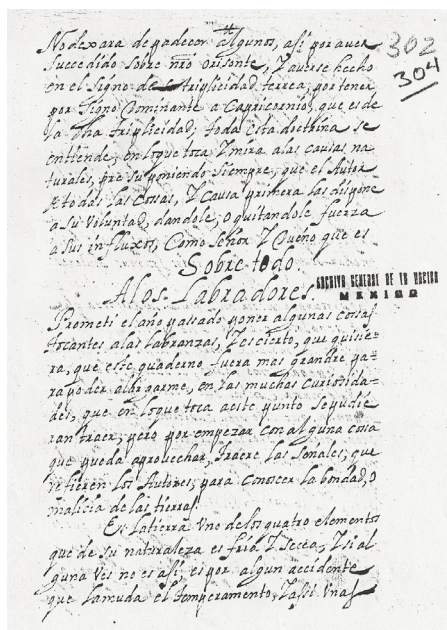 302
304
No dexara de padecer algunos, asi por aver
succedido sobre nro orisonte, Y averse hecho
en el signo de triplicidad terrea, por tener
por signo Dominante a Capricornio, que es de
la dha triplicidad, toda esta doctrina se
entiende, en loque toca Y mira alas causas na
turales, pre suponiendo siempre, que el Autor
de todas las Cossas, Y Causa primera las dispone
a su Voluntad, dandole, o quitandole fuerza
a sus influxos, Como señor Y Dueño que es
Sobre todo
Alos Labradores
ARCHIVO GENERAL DE LA NACION
MEXICO
Prometi el año passado poner algunas cosas
tocantes alas labranzas, Y es cierto, que quisie-
ra, que este quaderno fuera mas grandre pa-
ra poder alargarme, en las muchas curiosida-
des, que en loque toca aeste punto se pudie
ran traer, pero por empezar con alguna cosa
que pueda aprovechar, traere las señales, que
infieren los Autores, para conocer la bondad, o
malicia de las tierras.
Es la tierra Vno delos quatro elementos
que de su naturaleza es fria Y seca, Y si al
guna ves no es asi, es por algun accidente
que la muda el temperamento, Y assi Vnas